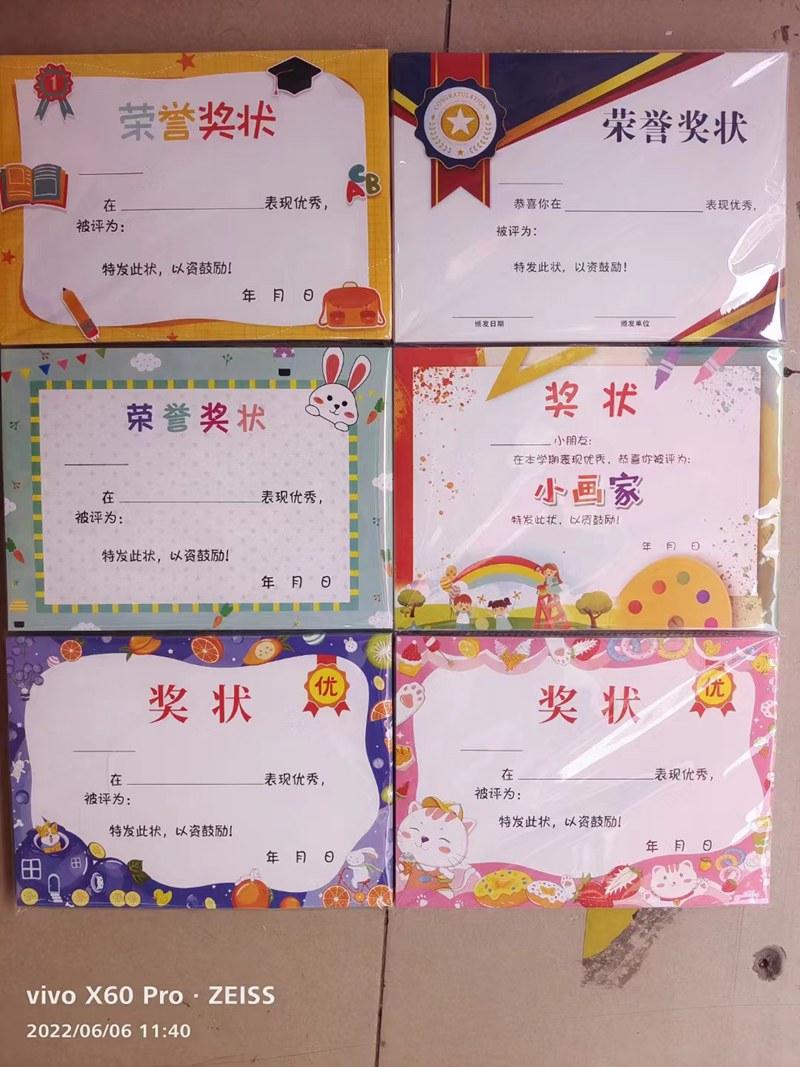 1
荣誉奖状
ABC
在 表现优秀，
被评为：
特发此状，以资鼓励！
年 月 日
CONGRATULATION
荣誉奖状
恭喜你在 表现优秀，
被评为：
特发此状，以资鼓励！
颁发日期 颁发单位
荣誉奖状
在 表现优秀，
被评为：
特发此状，以资鼓励！
年 月 日
奖状
小朋友：
在本学期表现优秀，恭喜你被评为：
小画家
特发此状，以资鼓励！
年 月 日
奖状
优
在 表现优秀，
被评为：
特发此状，以资鼓励！
年 月 日
奖状
优
在 表现优秀，
被评为：
特发此状，以资鼓励！
年 月 日
vivo X60 Pro · ZEISS
2022/06/06 11:40